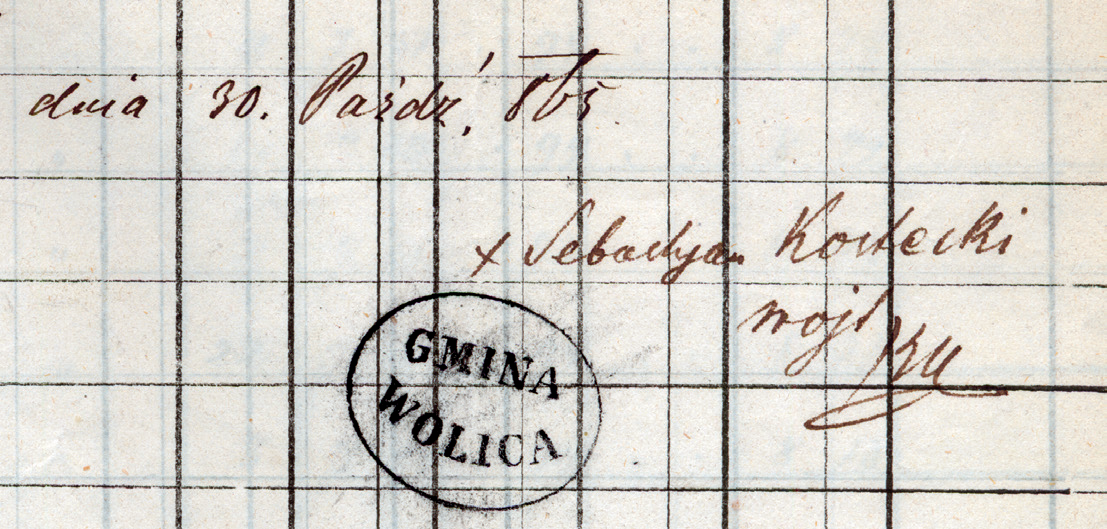 dnia 30. Paźdź, 865
+ Sebastyan Kostecki
wojt
GMINA
WOLICA